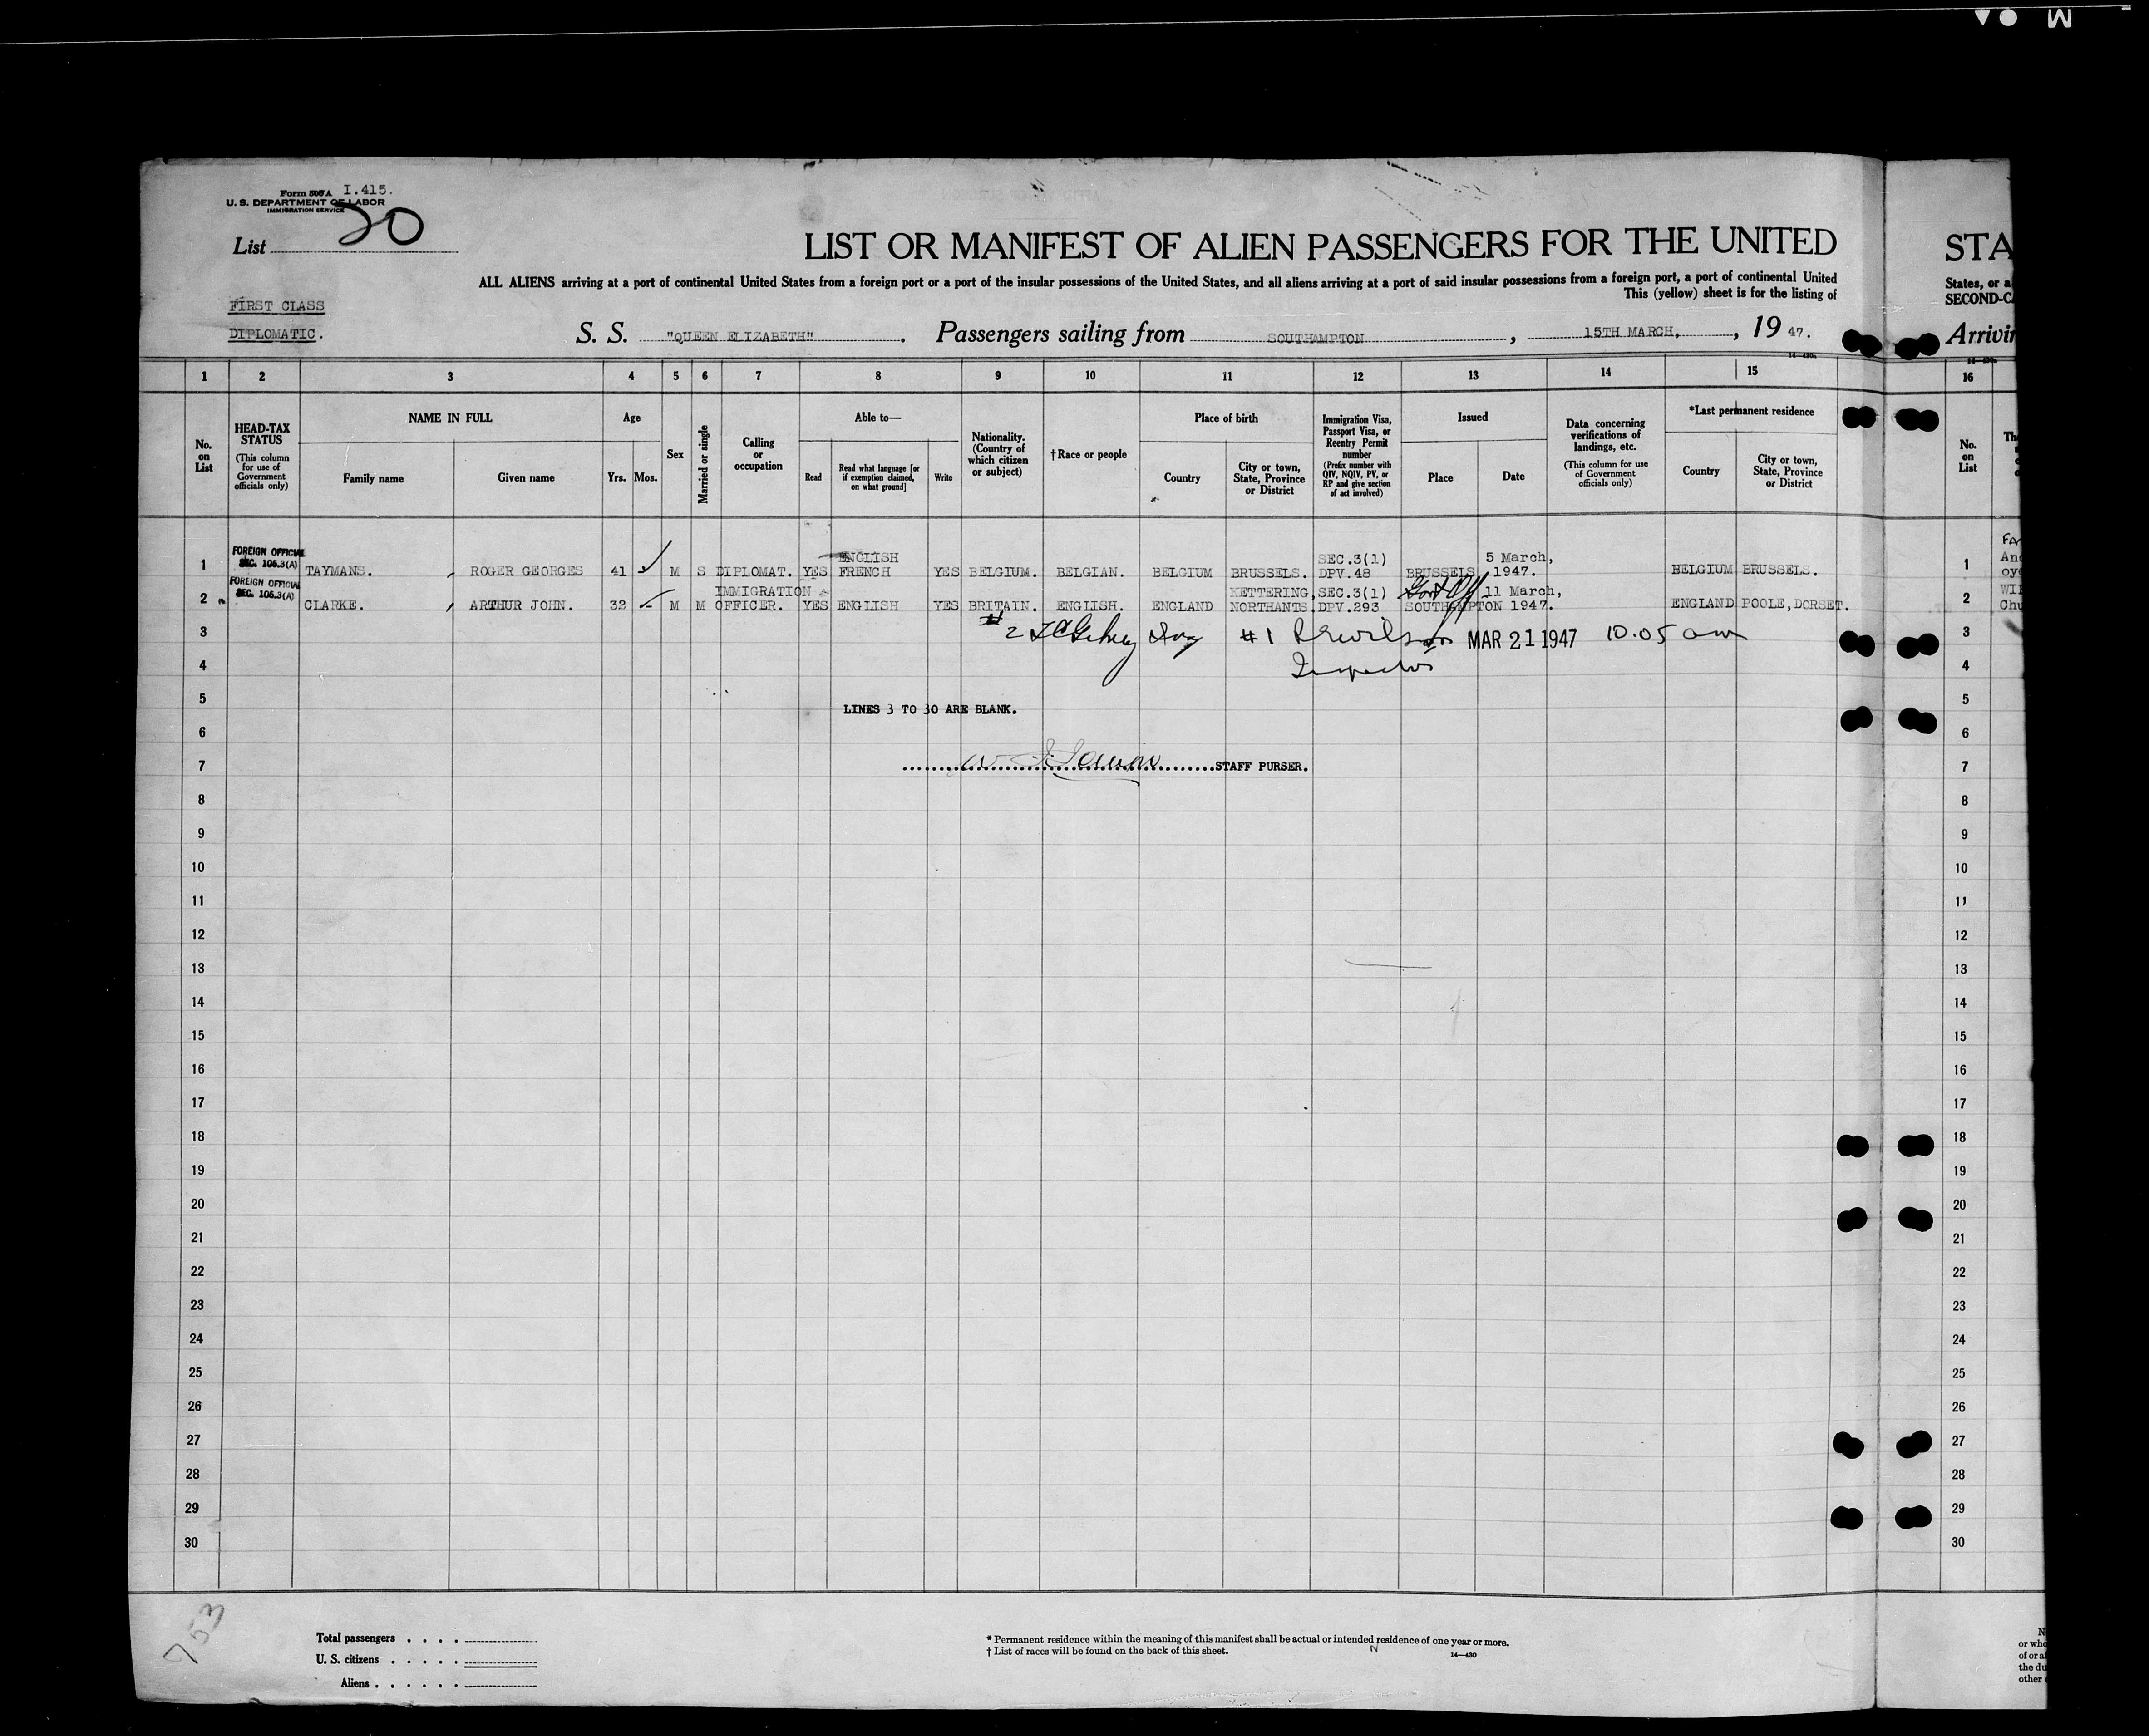 Form 500 A I.415.
U. S. DEPARTMENT OF LABOR
IMMIGRATION SERVICE
List 20
LIST OR MANIFEST OF ALIEN PASSENGERS FOR THE UNITED STA
ALL ALIENS arriving at a port of continental United States from a foreign port or a port of the insular possessions of the United States, and all aliens arriving at a port of said insular possessions from a foreign port, a port of continental United States, or a
This (yellow) sheet is for the listing of SECOND-C
FIRST CLASS
DIPLOMATIC.
S. S. "QUEEN ELIZABETH". Passengers sailing from SOUTHAMPTON, 15TH MARCH., 19 47. Arrivin
1 2 3 4 5 6 7 8 9 10 11 12 13 14 15 16
No. on List
HEAD-TAX STATUS
(This column for use of Government officials only)
NAME IN FULL
Family name
Given name
Age
Yrs. Mos.
Sex
Married or single
Calling or occupation
Able to—
Read
Read what language [or if exemption claimed, on what ground]
Write
Nationality. (Country of which citizen or subject)
† Race or people
Place of birth
Country
City or town, State, Province or District
Immigration Visa, Passport Visa, or Reentry Permit number
(Prefix number with QIV, NQIV, PV, or RP and give section of act involved)
Issued
Place
Date
Data concerning verifications of landings, etc.
(This column for use of Government officials only)
*Last permanent residence
Country
City or town, State, Province or District
No. on List
1 FOREIGN OFFICIAL SEC. 105.3(A) TAYMANS. ROGER GEORGES 41 M S DIPLOMAT. YES ENGLISH FRENCH YES BELGIUM. BELGIAN. BELGIUM BRUSSELS. SEC.3(1) DPV.48 BRUSSELS 5 March, 1947. BELGIUM BRUSSELS. 1
2 FOREIGN OFFICIAL SEC. 105.3(A) CLARKE. ARTHUR JOHN. 32 M M IMMIGRATION OFFICER. YES ENGLISH YES BRITAIN. ENGLISH. ENGLAND KETTERING, NORTHANTS. SEC.3(1) DPV.293 SOUTHAMPTON 11 March, 1947. ENGLAND POOLE, DORSET. 2
3 # 2 # 1 MAR 21 1947 10.05 am 3
4 Inspector 4
5 LINES 3 TO 30 ARE BLANK. 5
6 6
7 STAFF PURSER. 7
8 8
9 9
10 10
11 11
12 12
13 13
14 14
15 15
16 16
17 17
18 18
19 19
20 20
21 21
22 22
23 23
24 24
25 25
26 26
27 27
28 28
29 29
30 30
753
Total passengers . . . .
U. S. citizens . . . . .
Aliens . . . . . .
* Permanent residence within the meaning of this manifest shall be actual or intended residence of one year or more.
† List of races will be found on the back of this sheet.
14—430
or who
of or a
the du
other